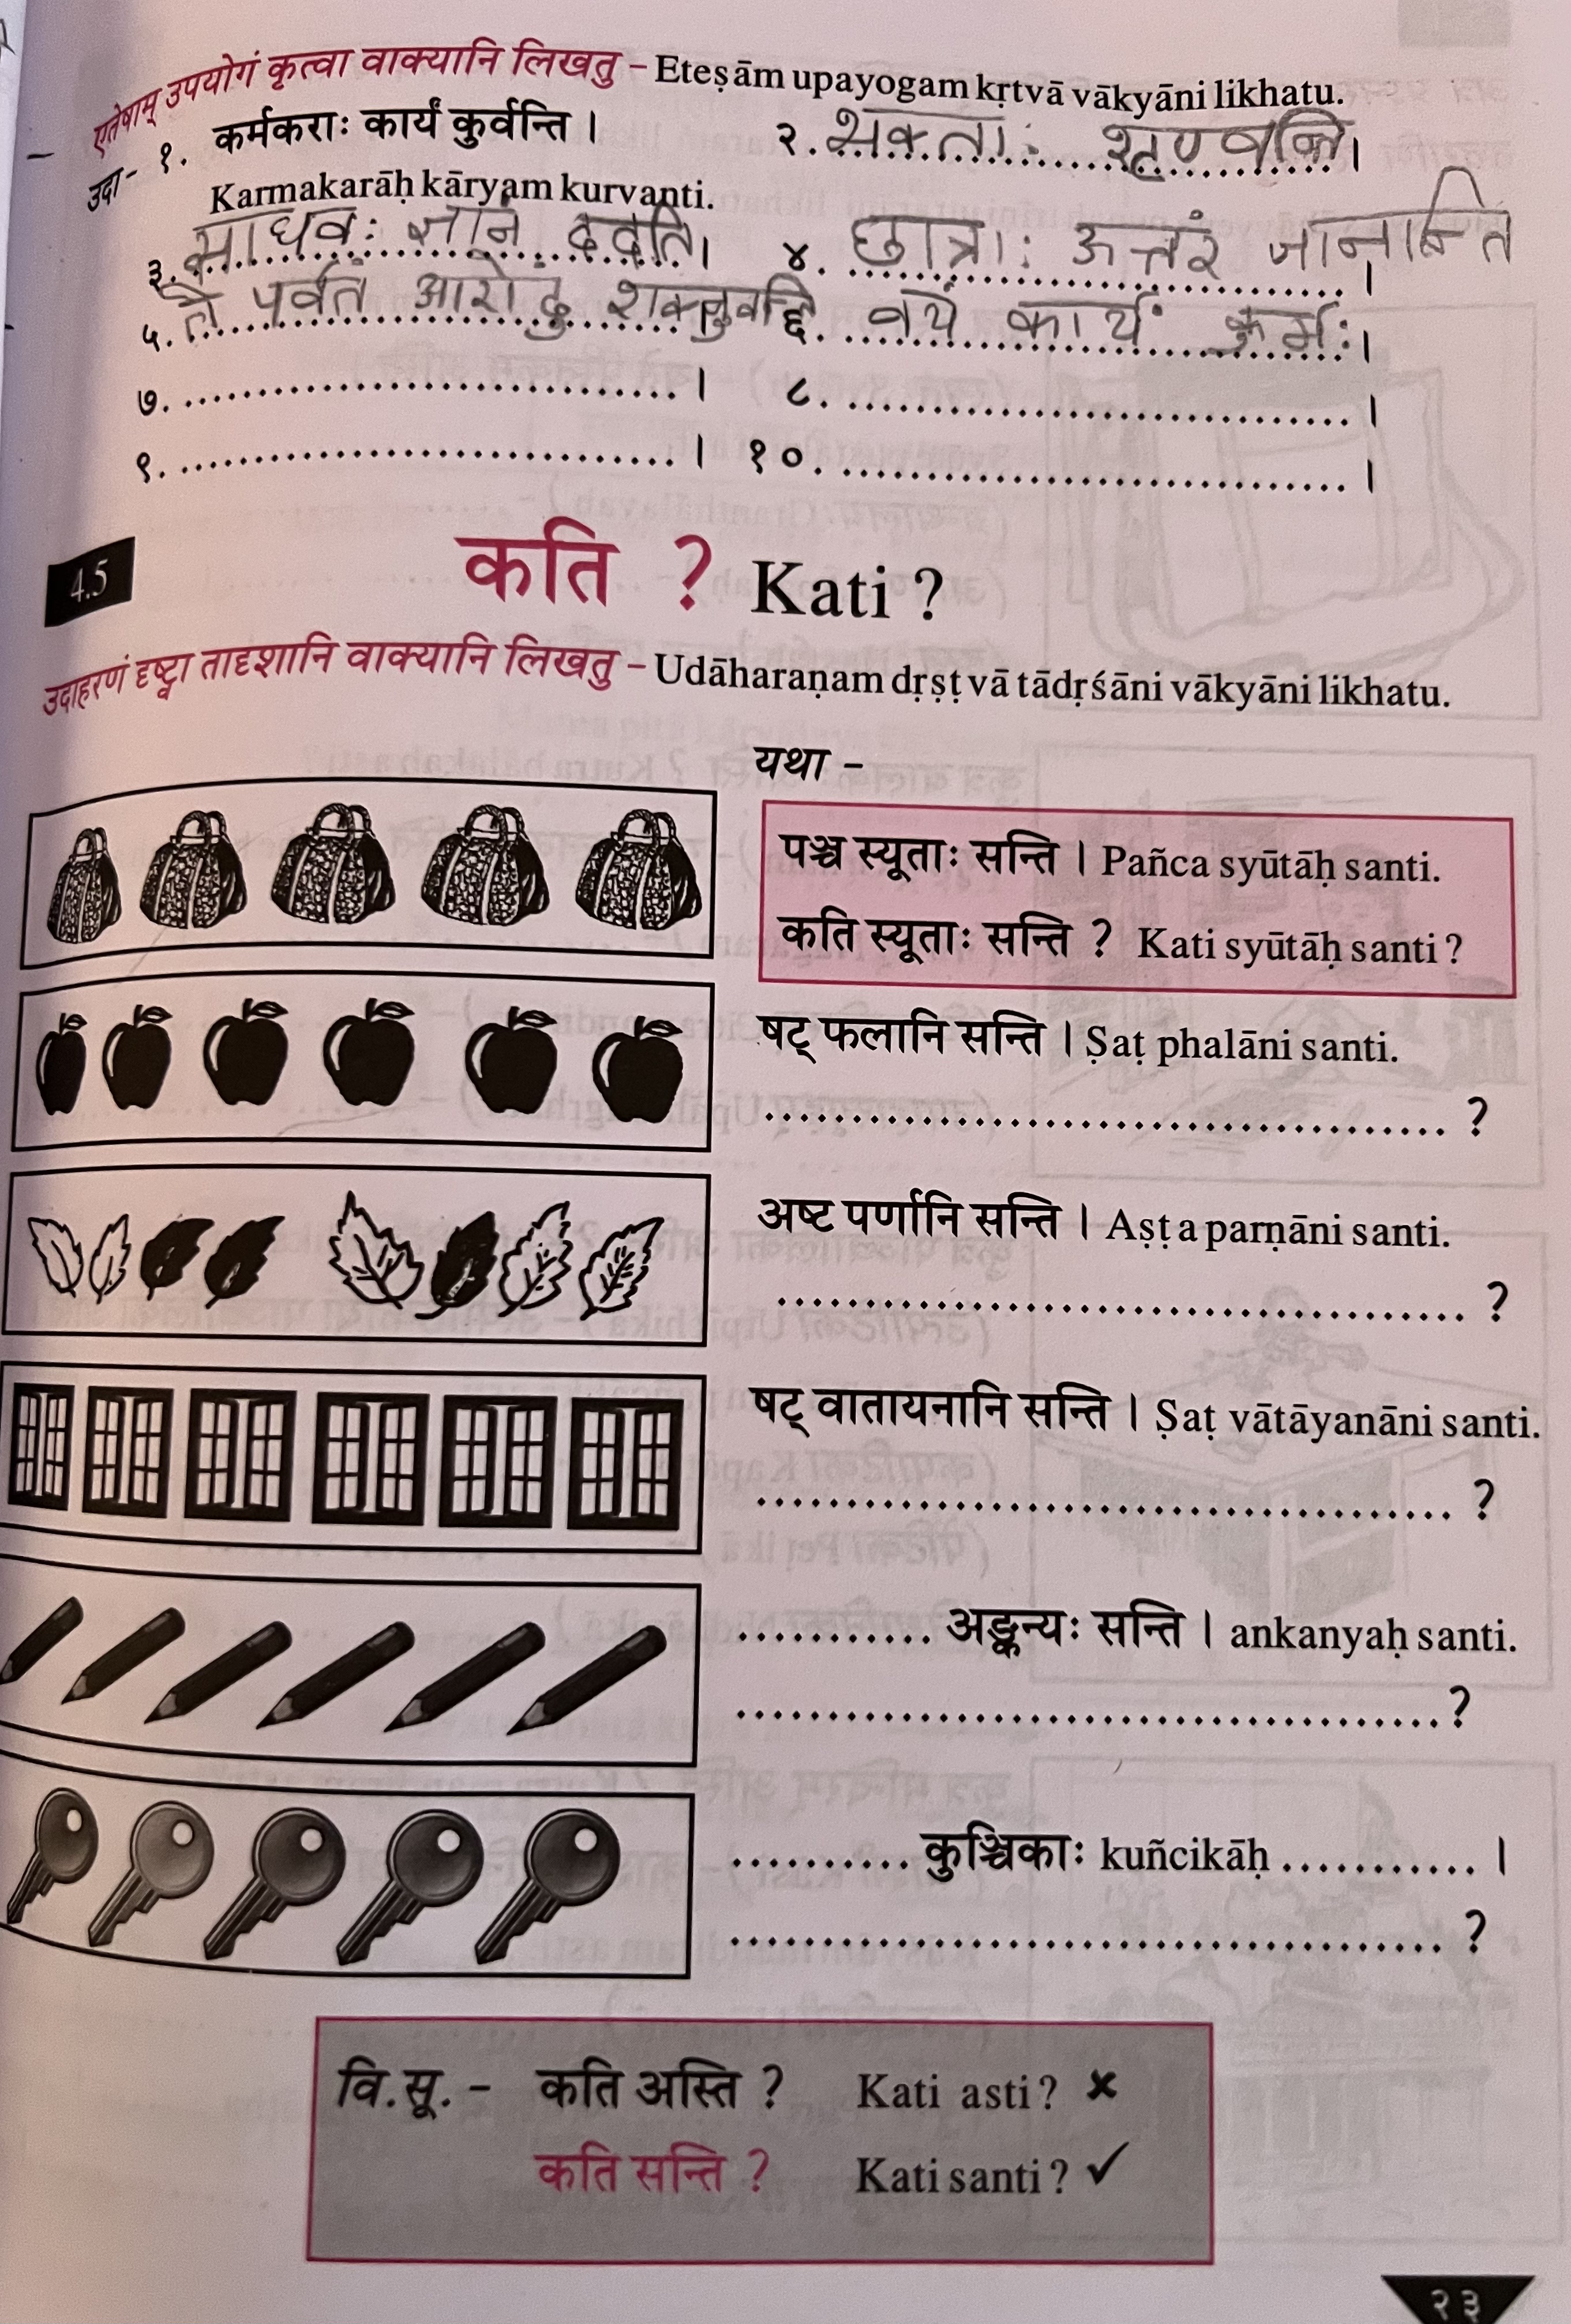 एतेषाम् उपयोगं कृत्वा वाक्यानि लिखतु – Eteṣām upayogam kṛtvā vākyāni likhatu.
उदा- १. कर्मकराः कार्यं कुर्वन्ति । २. भक्ताः शृण्वन्ति।
Karmakarāḥ kāryam kurvanti.
३. माधवः ज्ञानं ददाति। ४. छात्राः उत्तरं जानन्ति ।
५. ते पर्वतं आरोढुं शक्नुवन्ति ६. वयं कार्यं कुर्मः।
७. .................................. । ८. .................................. ।
९. .................................. । १०. .................................. ।
4.5 कति ? Kati ?
उदाहरणं दृष्ट्वा तादृशानि वाक्यानि लिखतु – Udāharaṇam dṛṣṭvā tādṛśāni vākyāni likhatu.
यथा –
पञ्च स्यूताः सन्ति । Pañca syūtāḥ santi.
कति स्यूताः सन्ति ? Kati syūtāḥ santi ?
षट् फलानि सन्ति । Ṣaṭ phalāni santi.
.............................................. ?
अष्ट पर्णानि सन्ति । Aṣṭa parṇāni santi.
.............................................. ?
षट् वातायनानि सन्ति । Ṣaṭ vātāyanāni santi.
.............................................. ?
............. अङ्कन्यः सन्ति । ankanyaḥ santi.
.............................................. ?
............ कुञ्चिकाः kuñcikāḥ ............. ।
.............................................. ?
वि.सू. – कति अस्ति ? Kati asti ? ✗
कति सन्ति ? Kati santi ? ✓
२३